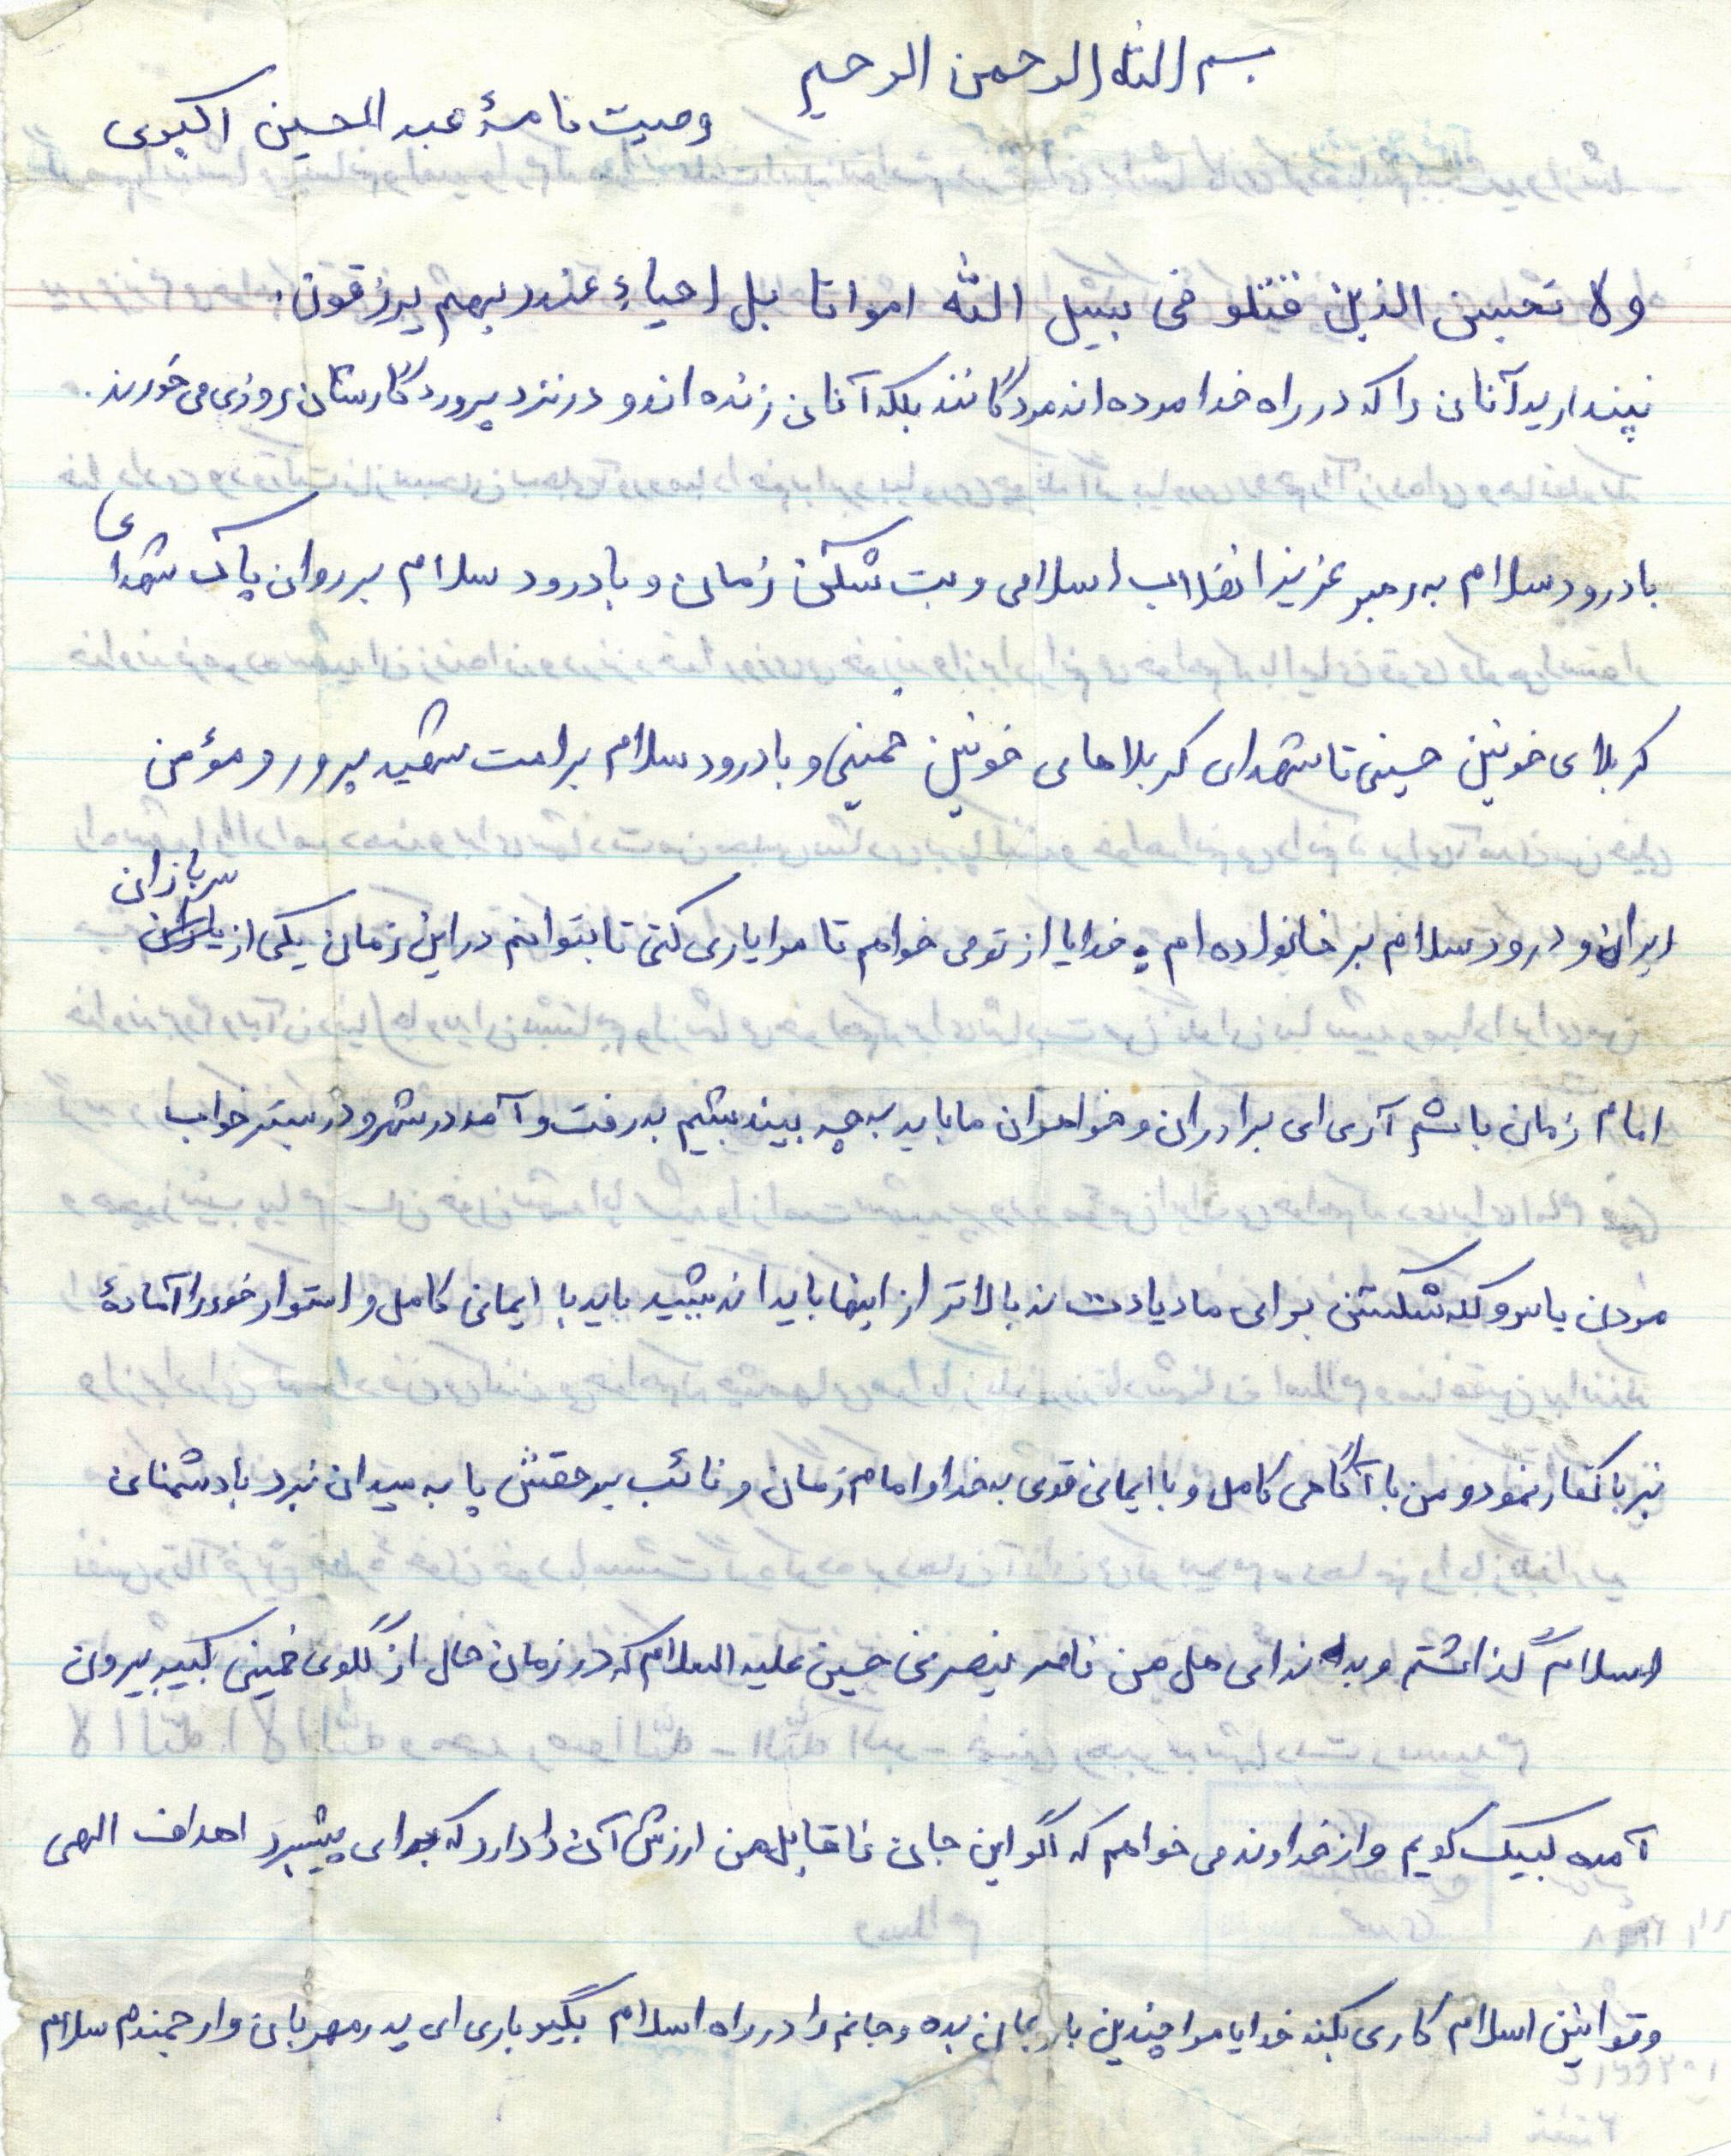 بسم الله الرحمن الرحیم
وصیت نامهٔ عبدالحسین اکبری
ولا تحسبن الذین قتلو فی سبیل الله امواتا بل احیاءِ عند ربهم یرزقون.
نپندارید آنانی را که در راه خدا مرده اند مردگانند بلکه آنان زنده اند و در نزد پروردگارشان روزی می خورند.
با درود سلام به رهبر عزیز انقلاب اسلامی و بت شکن زمان و با درود سلام بر روان پاک شهدای
کربلای خونین حسینی تا شهدای کربلاهای خونین خمینی و با درود سلام بر امت شهید پرور و مؤمن
ایران و درود سلام بر خانواده ام خدایا از تو می خواهم تا مرا یاری کنی تا بتوانم در این زمان یکی از سربازان
امام زمان باشم آری ای برادران و خواهران ما باید به چه بیندیشیم به رفت و آمد در شهر و در بستر خواب
مردن یا سر و کله شکستن برای مادیات نه بالاتر از اینها باید اندیشید باید با ایمانی کامل و استوار خود را آمادهٔ
نبر با کفار نمود و من با آگاهی کامل و با ایمانی قوی به خدا و امام زمان و نائب بر حقش پا به میدان نبرد با دشمنان
اسلام گذاشتم و به ندای هل من ناصر ینصرنی حسین علیه السلام که در زمان حال از گلوی خمینی کبیر بیرون
آمده لبیک گویم و از خداوند می خواهم که اگر این جان ناقابل من ارزش آن را دارد که برای پیشبرد اهداف الهی
و قوانین اسلام کاری بکند خدایا مرا چندین بار جان بده و جانم را در راه اسلام بگیر باری ای پدر مهربان و ارجمندم سلام